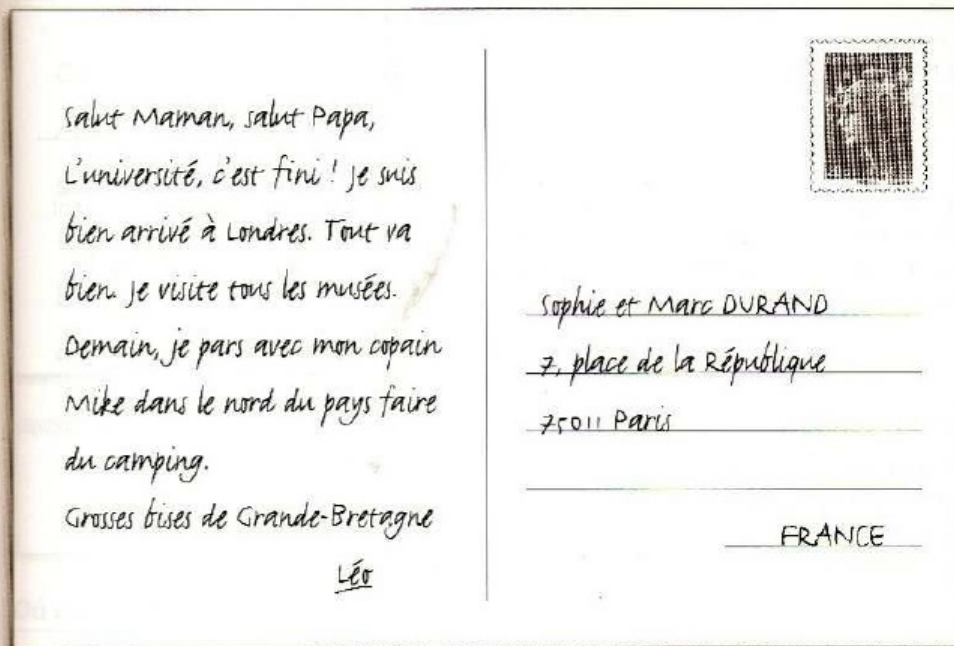 Salut Maman, salut Papa,
L'université, c'est fini ! Je suis
bien arrivé à Londres. Tout va
bien. Je visite tous les musées.
Demain, je pars avec mon copain
Mike dans le nord du pays faire
du camping.
Grosses bises de Grande-Bretagne
Léo
Sophie et Marc DURAND
7, place de la République
75011 Paris
FRANCE